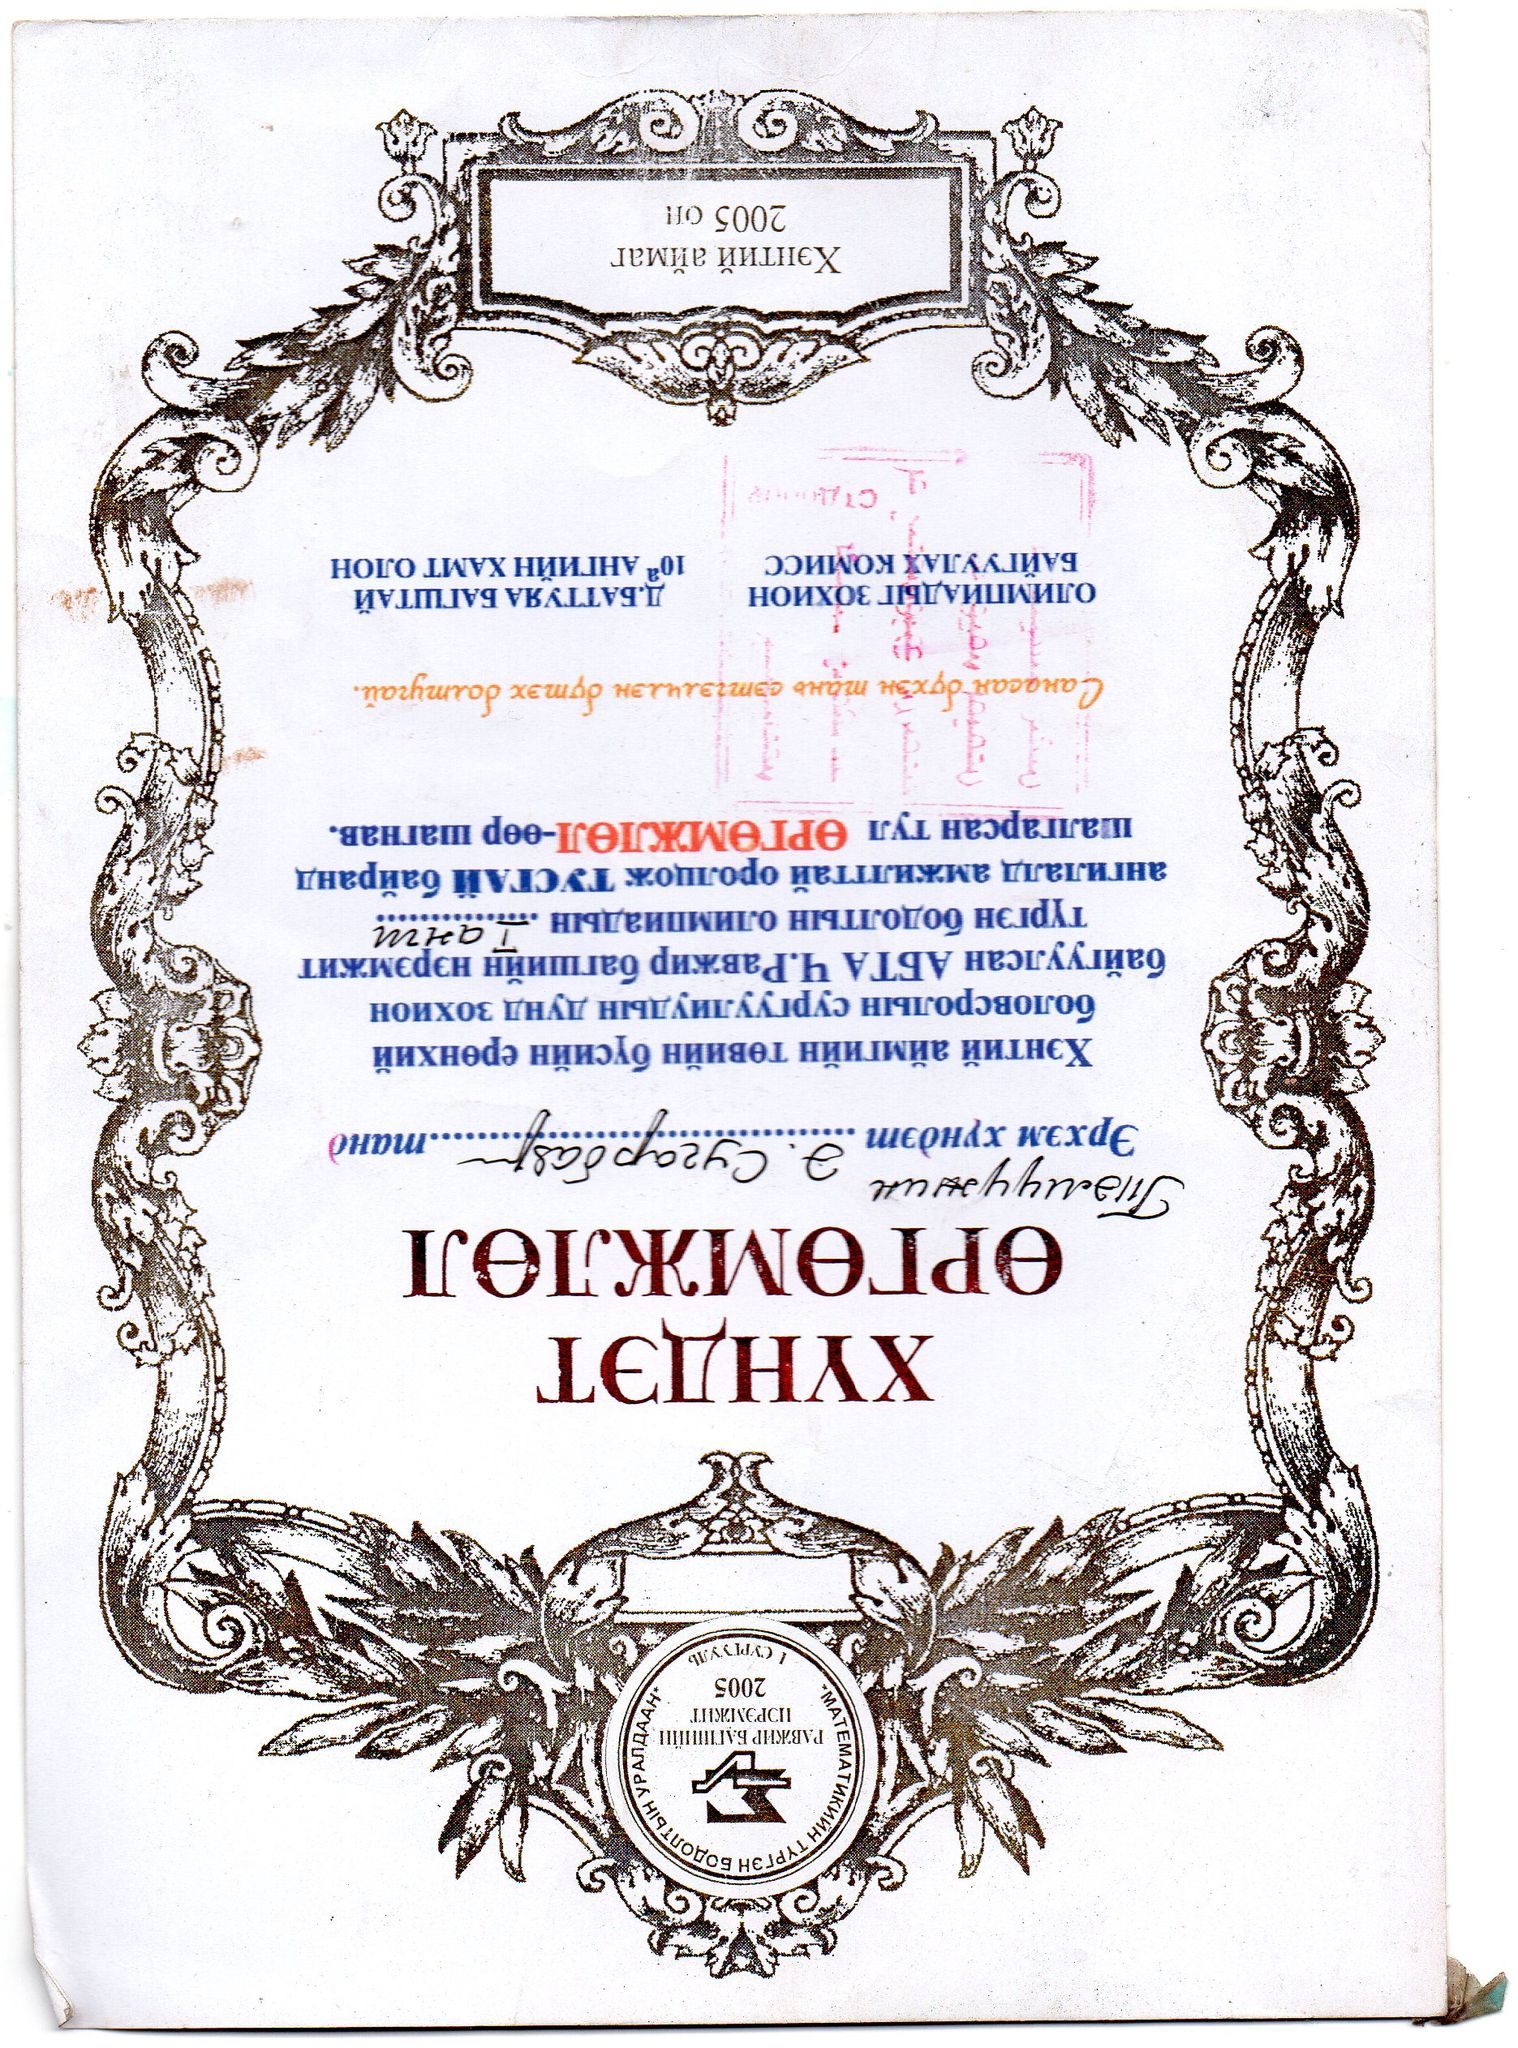 "МАТЕМАТИКИЙН ТҮРГЭН БОДОЛТЫН УРАЛДААН"
РАВЖИР БАГШИЙН
НЭРЭМЖИТ
2005
1 СУРГУУЛЬ
ХҮНДЭТ
ӨРГӨМЖЛӨЛ
Тэмүүжин
Эрхэм хүндэт Э. Сугарбаяр танд
Хэнтий аймгийн төвийн бүсийн ерөнхий
боловсролын сургуулиудын дунд зохион
байгуулсан АБТА Ч.Равжир багшийн нэрэмжит
түргэн бодолтын олимпиадын I анги
ангилалд амжилттай оролцож ТУСГАЙ байранд
шалгарсан тул ӨРГӨМЖЛӨЛ-өөр шагнав.
Санасан бүхэн тань сэтгэлчлэн бүтэх болтугай.
ОЛИМПИАДЫГ ЗОХИОН
БАЙГУУЛАХ КОМИСС
Д.БАТТУЯА БАГШТАЙ
10а АНГИЙН ХАМТ ОЛОН
Хэнтий аймаг
2005 он